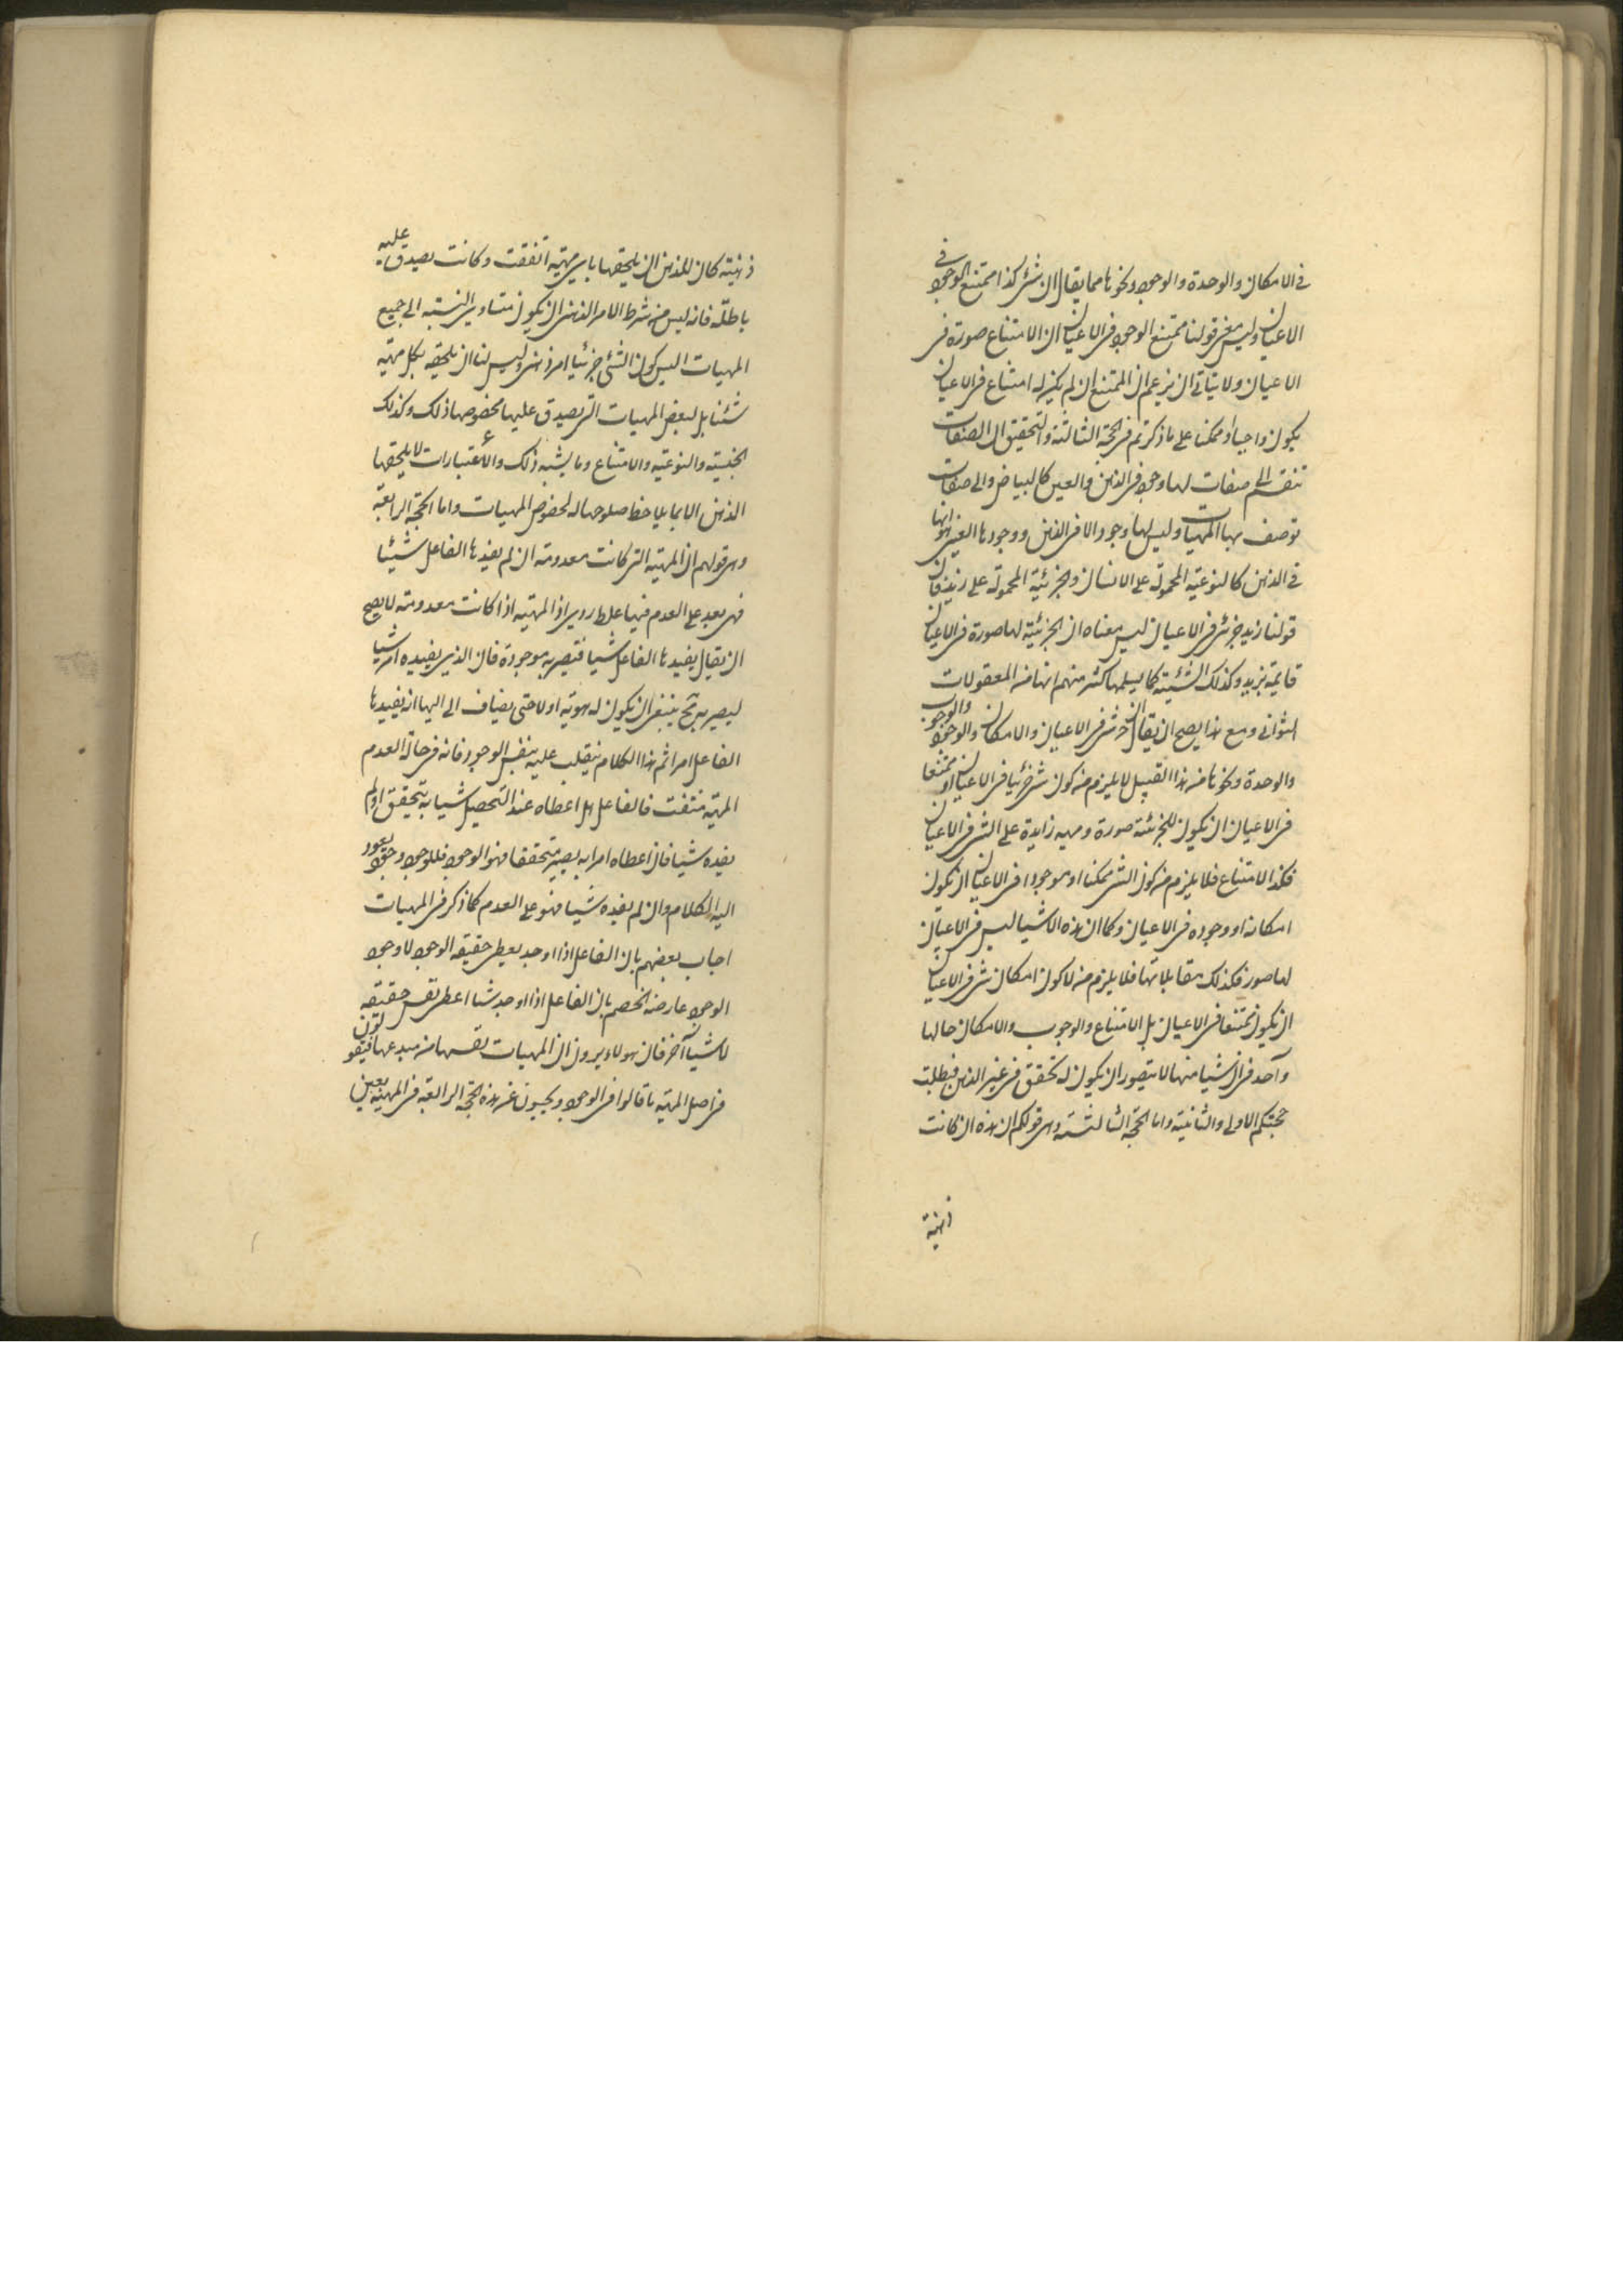 في الامكان والوحدة والوجود ونحوها مما يقال ان شئ كذا ممتنع الوجود في
الاعيان وليس معنى قولنا ممتنع الوجود في الاعيان ان الامتناع صورة في
الاعيان ولا يتاتى ان يزعم ان الممتنع ان لم يكن له امتناع في الاعيان
يكون واجبا او ممكنا على ما ذكرتم في الحجة الثالثة والتحقيق ان الصفات
تنقسم الى صفات لها وجود في الذهن والعين كالبياض والى صفات
توصف بها المهيات وليس لها وجود الا في الذهن ووجودها العيني هو انها
في الذهن كالنوعية المحمولة على الانسان والجزئية المحمولة على زيد فان
قولنا زيد جزئي في الاعيان ليس معناه ان الجزئية لها صورة في الاعيان
قايمة بزيد وكذلك الشيئية كما يسلمها كثير منهم انها من المعقولات
الثواني ومع هذا يصح ان يقال ان خ شئ في الاعيان والامكان والوجود والوجوب
والوحدة ونحوها من هذا القبيل لا يلزم من كون شئ جزئيا في الاعيان او ممتنعا
في الاعيان ان يكون للجزئية صورة ومهية زايدة على الشئ في الاعيان
فكذا الامتناع فلا يلزم من كون الشئ ممكنا او موجودا في الاعيان ان يكون
امكانه او وجوده في الاعيان وكما ان هذه الاشيا ليس في الاعيان
لها صور فكذلك مقابلاتها فلا يلزم من لا كون امكان شئ في الاعيان
ان يكون ممتنعا في الاعيان بل الامتناع والوجوب والامكان حالها
واحد في ان شيا منها لا يتصور ان يكون له تحقق في غير الذهن فبطلت
حجتكم الاولى والثانية واما الحجة الثالثة وهي قولكم ان هذه ان كانت
ذهنية
ذهنية كان للذهن ان يلحقها باي مهية اتفقت وكانت يصدق عليه
باطلة فانه ليس من شرط الامر الذهني ان يكون متساوي النسبة الى جميع
المهيات اليس كون الشئ جزئيا امر ذهني وليس لنا ان نلحقه بكل مهية
شئنا بل لبعض المهيات التي يصدق عليها بخصوصها ذلك وكذلك
الجنسية والنوعية والامتناع وما يشبه ذلك والاعتبارات لا يلحقها
الذهن الا بما يلاحظ صلوحها له لخصوص المهيات واما الحجة الرابعة
وهي قولهم ان المهية التي كانت معدومة ان لم يفدها الفاعل شيئا
فهي بعد على العدم فيها غلط ردي اذ المهية اذا كانت معدومة لا يصح
ان يقال يفيدها الفاعل شيا فتصير به موجودة فان الذي يفيده امر شيا
ليصير به تح ينبغي ان يكون له هوية اولا حتى يضاف الى اليها انه يفيدها
الفاعل امرا ثم هذا الكلام ينقلب عليه بنفس الوجود فانه في حالة العدم
المهية منتفت فالفاعل هل اعطاه عند التحصيل شيا به يتحقق او لم
يفده شيا فان اعطاه امرا به يصير متحققا فهو الوجود فللوجود وجود يعود
اليه الكلام وان لم يفده شيا فهو على العدم كما ذكر في المهيات
اجاب بعضهم بان الفاعل اذا اوجد يعطي حقيقة الوجود لا وجود
الوجود عارضه الخصم بان الفاعل اذا اوجد شيا اعطى نفس حقيقته
لا شيا آخر فان هولاء يرون ان المهيات نفسها من مبدعها فيقولون
في اصل المهية ما قالوا في الوجود ويجيبون عن هذه الحجة الرابعة في المهية بعين